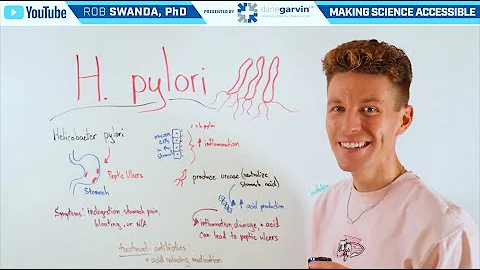 YouTube
ROB SWANDA, PhD
PRESENTED BY
danegarvin
MAKING SCIENCE ACCESSIBLE
H. pylori
Helicobacter pylori
Peptic Ulcers
Stomach
Symptoms: indigestion, stomach pain,
bloating, or N/A
mucosa
cells
in the
stomach
h. pylori
↑ inflammation
produce urease (neutralize
stomach acid)
↑ acid production
↑ inflammation, damage + acid
can lead to peptic ulcers
treatment: antibiotics
+ acid reducing medication